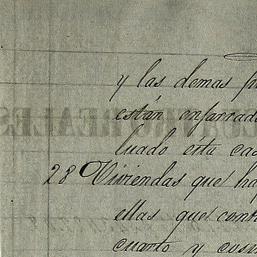 y las demas
están enfarcad
luado esta cas
28 Viviendas que ha
ellas que cont
cuarto y cosi